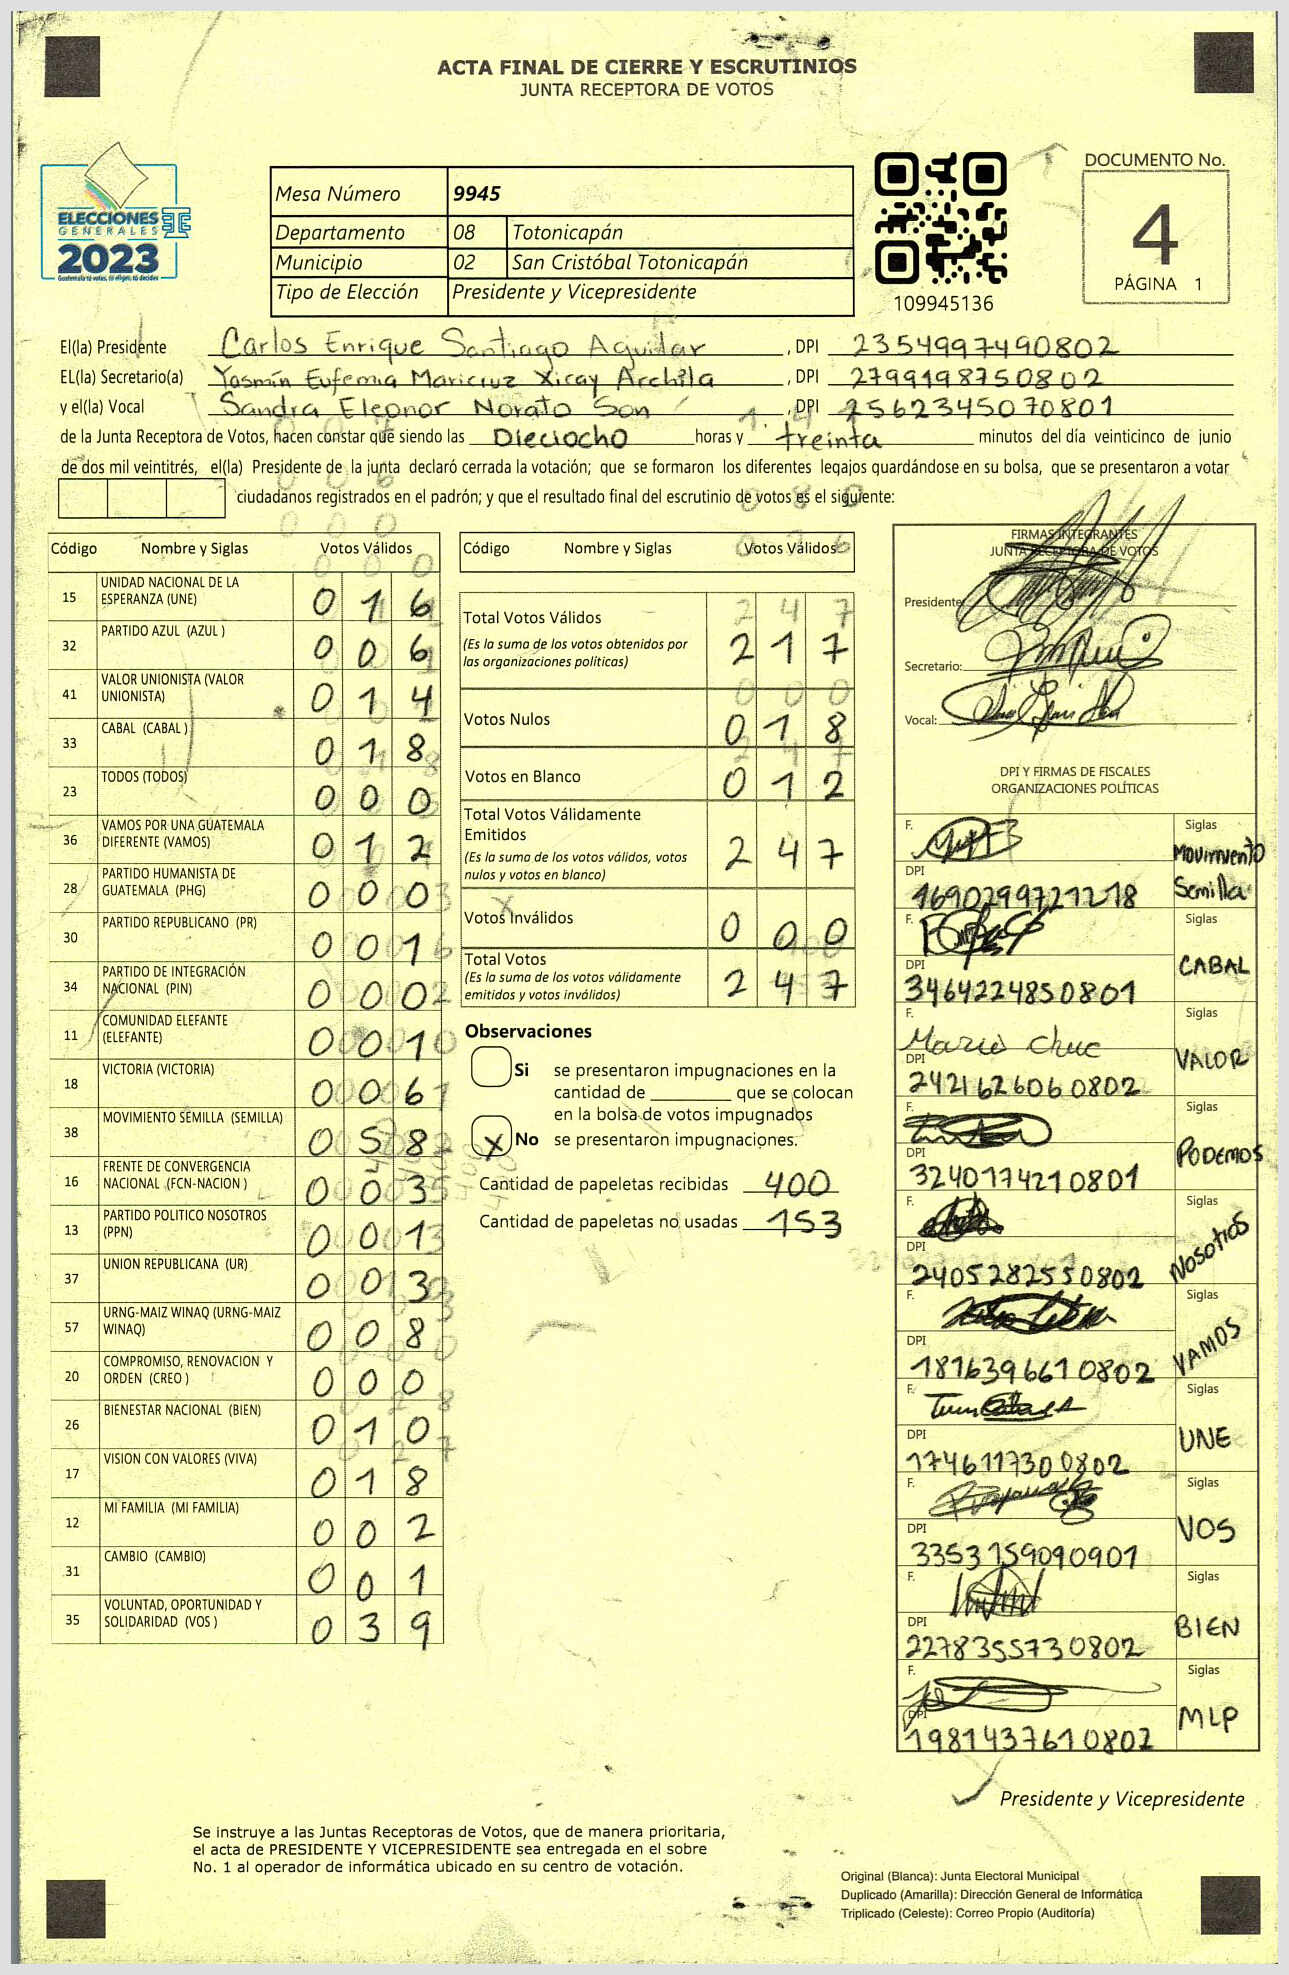 ACTA FINAL DE CIERRE Y ESCRUTINIOS
JUNTA RECEPTORA DE VOTOS
ELECCIONES
GENERALES
2023
Guatemala tú votas, tú eliges, tú decides
Mesa Número 9945
Departamento 08 Totonicapán
Municipio 02 San Cristóbal Totonicapán
Tipo de Elección Presidente y Vicepresidente
109945136
DOCUMENTO No.
4
PÁGINA 1
El(la) Presidente Carlos Enrique Santiago Aguilar , DPI 2354997490802
EL(la) Secretario(a) Yasmín Eufemia Maricruz Xicay Archila , DPI 2799198750802
y el(la) Vocal Sandra Eleonor Norato Son , DPI 2562345070801
de la Junta Receptora de Votos, hacen constar que siendo las Dieciocho horas y treinta minutos del día veinticinco de junio
de dos mil veintitrés, el(la) Presidente de la junta declaró cerrada la votación; que se formaron los diferentes legajos quardándose en su bolsa, que se presentaron a votar
ciudadanos registrados en el padrón; y que el resultado final del escrutinio de votos es el siguiente:
Código Nombre y Siglas Votos Válidos
15 UNIDAD NACIONAL DE LA ESPERANZA (UNE) 0 1 6
32 PARTIDO AZUL (AZUL ) 0 0 6
41 VALOR UNIONISTA (VALOR UNIONISTA) 0 1 4
33 CABAL (CABAL ) 0 1 8
23 TODOS (TODOS) 0 0 0
36 VAMOS POR UNA GUATEMALA DIFERENTE (VAMOS) 0 1 2
28 PARTIDO HUMANISTA DE GUATEMALA (PHG) 0 0 0
30 PARTIDO REPUBLICANO (PR) 0 0 1
34 PARTIDO DE INTEGRACIÓN NACIONAL (PIN) 0 0 0
11 COMUNIDAD ELEFANTE (ELEFANTE) 0 0 1
18 VICTORIA (VICTORIA) 0 0 6
38 MOVIMIENTO SEMILLA (SEMILLA) 0 5 8
16 FRENTE DE CONVERGENCIA NACIONAL (FCN-NACION ) 0 0 3
13 PARTIDO POLITICO NOSOTROS (PPN) 0 0 1
37 UNION REPUBLICANA (UR) 0 0 3
57 URNG-MAIZ WINAQ (URNG-MAIZ WINAQ) 0 0 8
20 COMPROMISO, RENOVACION Y ORDEN (CREO ) 0 0 0
26 BIENESTAR NACIONAL (BIEN) 0 1 0
17 VISION CON VALORES (VIVA) 0 1 8
12 MI FAMILIA (MI FAMILIA) 0 0 2
31 CAMBIO (CAMBIO) 0 0 1
35 VOLUNTAD, OPORTUNIDAD Y SOLIDARIDAD (VOS ) 0 3 9
Código Nombre y Siglas Votos Válidos
Total Votos Válidos 2 1 7
(Es la suma de los votos obtenidos por las organizaciones políticas)
Votos Nulos 0 1 8
Votos en Blanco 0 1 2
Total Votos Válidamente Emitidos 2 4 7
(Es la suma de los votos válidos, votos nulos y votos en blanco)
Votos Inválidos 0 0 0
Total Votos 2 4 7
(Es la suma de los votos válidamente emitidos y votos inválidos)
Observaciones
Si se presentaron impugnaciones en la
cantidad de que se colocan
en la bolsa de votos impugnados
X No se presentaron impugnaciones.
Cantidad de papeletas recibidas 400
Cantidad de papeletas no usadas 153
FIRMAS INTEGRANTES
JUNTA RECEPTORA DE VOTOS
Presidente:
Secretario:
Vocal:
DPI Y FIRMAS DE FISCALES
ORGANIZACIONES POLÍTICAS
F. Siglas Movimiento Semilla
DPI 1690299721218
F. Siglas CABAL
DPI 3464224850801
F. Mario Chuc Siglas VALOR
DPI 2421626060802
F. Siglas PODEMOS
DPI 3240174210801
F. Siglas Nosotros
DPI 2405282550802
F. Siglas VAMOS
DPI 1816396610802
F. Siglas UNE
DPI 1746117300802
F. Siglas VOS
DPI 3353159090901
F. Siglas BIEN
DPI 2278355730802
F. Siglas MLP
DPI 1981437610802
Presidente y Vicepresidente
Se instruye a las Juntas Receptoras de Votos, que de manera prioritaria,
el acta de PRESIDENTE Y VICEPRESIDENTE sea entregada en el sobre
No. 1 al operador de informática ubicado en su centro de votación.
Original (Blanca): Junta Electoral Municipal
Duplicado (Amarilla): Dirección General de Informática
Triplicado (Celeste): Correo Propio (Auditoría)